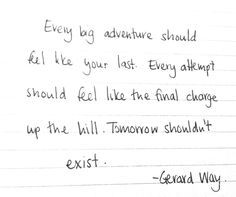 Every big adventure should
feel like your last. Every attempt
should feel like the final charge
up the hill. Tomorrow shouldn't
exist.
-Gerard Way.